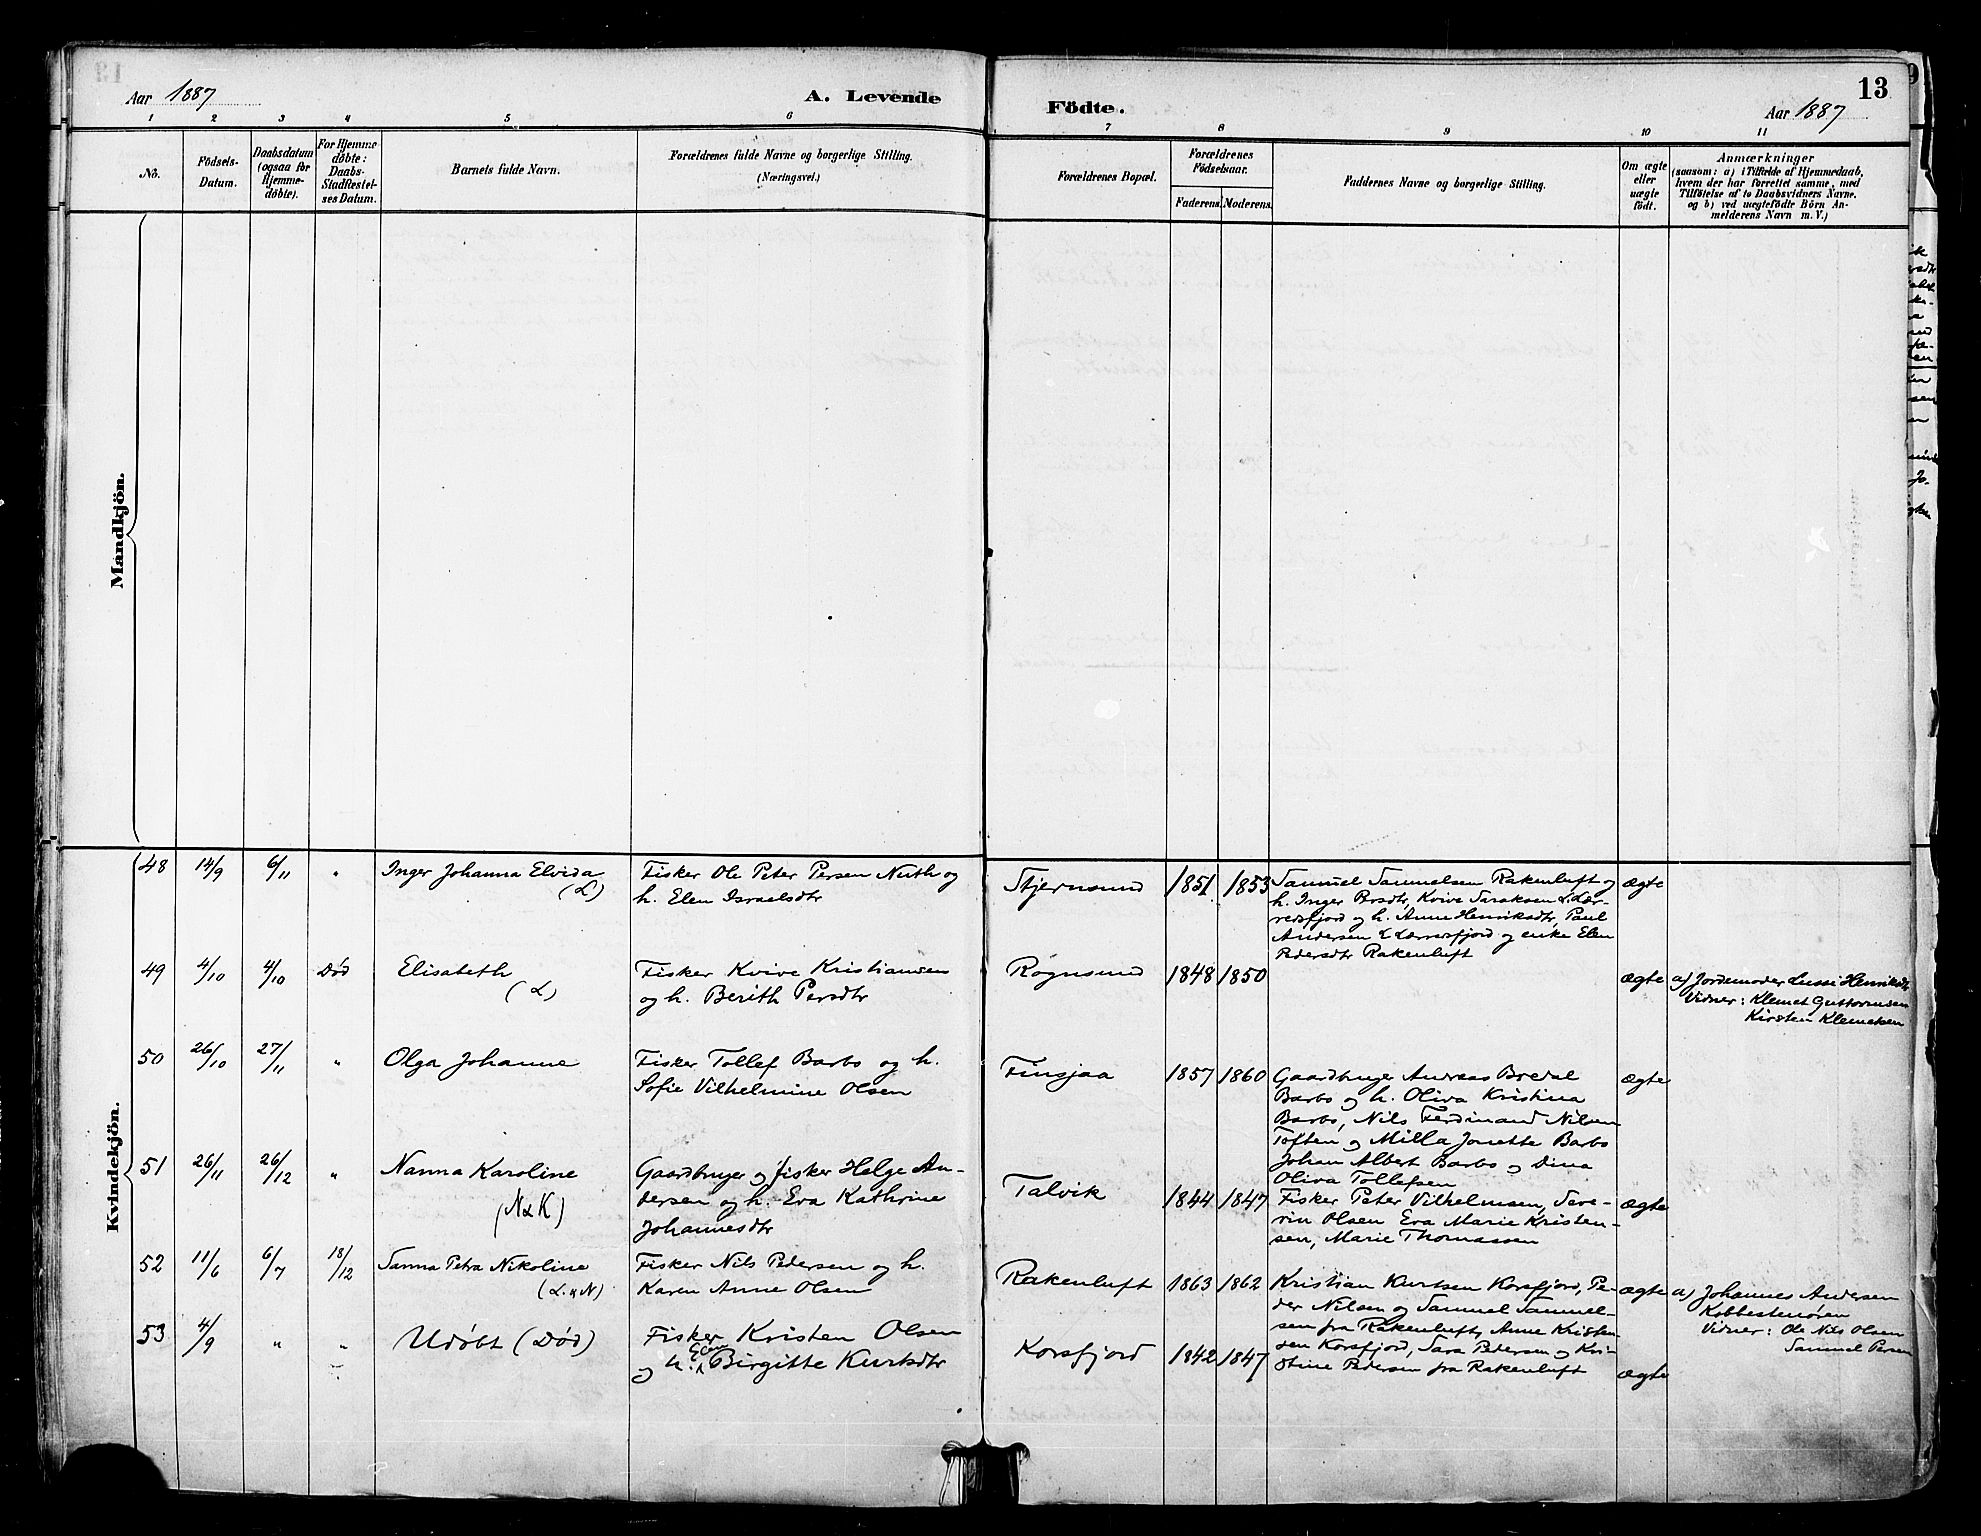 Aar 1887
A. Levende
Födte.
Aar 1887
13
1 2 3 4 5 6 7 8 9 10 11
No.
Födsels-
Datum.
Daabsdatum
(ogsaa for
Hjemme-
döbte).
For Hjemme
döbte:
Daabs-
Stadfæstel-
ses Datum.
Barnets fulde Navn.
Forældrenes fulde Navne og borgerlige Stilling.
(Næringsvei.)
Forældrenes Bopæl.
Forældrenes
Födselsaar.
Faderens. Moderens.
Faddernes Navne og borgerlige Stilling.
Om ægte
eller
uægte
födt.
Anmærkninger
(saasom: a) i Tilfælde af Hjemmedaab,
hvem der har forrettet samme, med
Tilföielse af to Daabsvidners Navne.
og b) ved uægtefödte Börn An-
melderens Navn m. V.)
Mandkjön.
Kvindekjön.
48 14/9 6/11 " Inger Johanna Elvida
(L)
Fisker Ole Peter Persen Nuth og
h. Elen Israelsdtr
Stjernsund 1851 1853
Samuel Samuelsen Rakenluft og
h. Inger Persdtr, Kvive Saraksen L. Lær-
redsfjord og h. Anne Henriksdtr, Paul
Andersen L Lærredsfjord og enke Elen
Pedersdtr Rakenluft
ægte
49 4/10 4/10 Død Elisabeth
(L)
Fisker Kvive Kristiansen
og h. Berith Persdtr
Rognsund 1848 1850
ægte
a) Jordemoder Lussi Henriksdtr
Vidner: Klemet Guttormsen
Kirsten Klemetsen
50 26/10 27/11 " Olga Johanne
Fisker Tollef Barbo og h.
Sofie Vilhelmine Olsen
Finsjaa 1857 1860
Gaardbruger Andreas Bredal
Barbo og h. Oliva Kristina
Barbo, Nils Ferdinand Nilsen
Toften og Milla Jonette Barbo
Johan Albert Barbo og Dina
Oliva Tollefsen
ægte
51 26/11 26/12 " Nanna Karoline
(N & K)
Gaardbruger og fisker Helge An-
dersen og h. Eva Kathrine
Johannesdtr
Talvik 1844 1847
Fisker Peter Vilhelmsen, Seve-
rin Olsen Eva Marie Kristen-
sen, Marie Thomassen
ægte
52 11/6 6/7 18/12 Sanna Petra Nikoline
(L. & N)
Fisker Nils Pedersen og h.
Karen Anne Olsen
Rakenluft 1863 1862
Kristian Kurtsen Korsfjord, Pe-
der Nilsen og Samuel Samuel-
sen fra Rakenluft, Anne Kristen-
sen Korsfjord, Sara Pedersen og Kri-
stine Pedersen fra Rakenluft
ægte
a) Johannes Andersen
Kobbestenøen
Vidner: Ole Nils Olsen
Samuel Persen
53 4/9 " " Udøbt (Død)
Fisker Kristen Olsen
og h. Elen Birgitte Kurtsdtr
Korsfjord 1842 1847
ægte